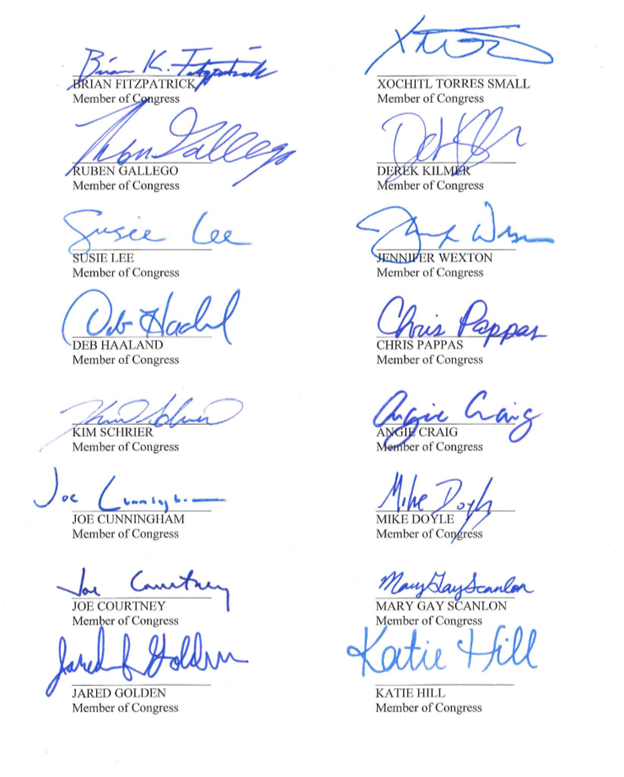 Brian K. Fitzpatrick
BRIAN FITZPATRICK
Member of Congress
XOCHITL TORRES SMALL
Member of Congress
Ruben Gallego
RUBEN GALLEGO
Member of Congress
Derek Kilmer
DEREK KILMER
Member of Congress
Susie Lee
SUSIE LEE
Member of Congress
Jennifer Wexton
JENNIFER WEXTON
Member of Congress
Deb Haaland
DEB HAALAND
Member of Congress
Chris Pappas
CHRIS PAPPAS
Member of Congress
Kim Schrier
KIM SCHRIER
Member of Congress
Angie Craig
ANGIE CRAIG
Member of Congress
Joe Cunningham
JOE CUNNINGHAM
Member of Congress
Mike Doyle
MIKE DOYLE
Member of Congress
Joe Courtney
JOE COURTNEY
Member of Congress
Mary Gay Scanlon
MARY GAY SCANLON
Member of Congress
Jared Golden
JARED GOLDEN
Member of Congress
Katie Hill
KATIE HILL
Member of Congress